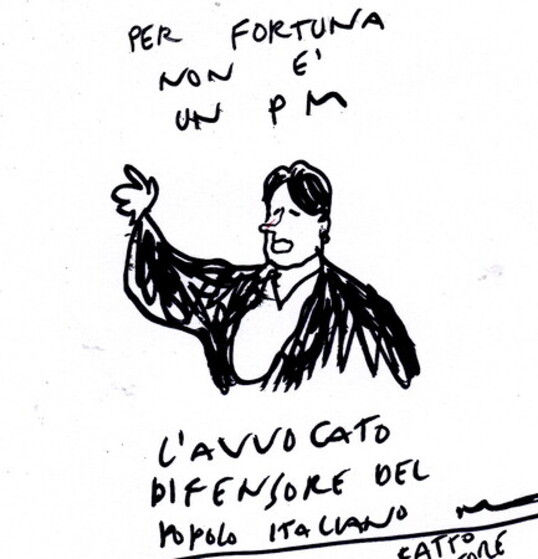 PER FORTUNA
NON E'
UN PM
L'AVVOCATO
DIFENSORE DEL
POPOLO ITALIANO